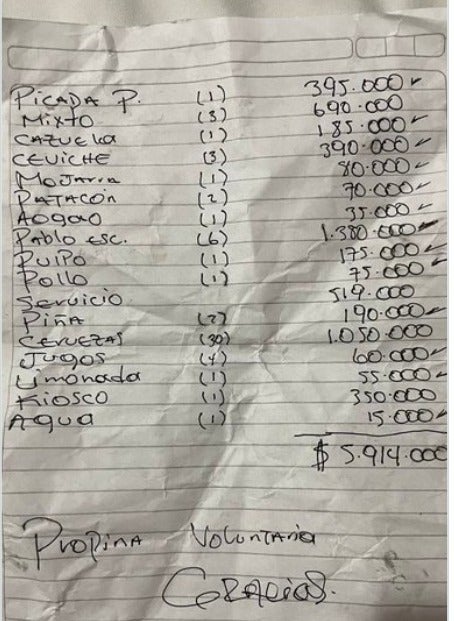 PICADA P. (1) 395.000
MIXTO (3) 690.000
CAZUELA (1) 185.000
CEVICHE (3) 390.000
MOJARRA (1) 80.000
PATACON (2) 70.000
AOGAO (1) 35.000
Pablo esc. (6) 1.380.000
PULPO (1) 175.000
Pollo (1) 75.000
Servicio 519.000
PIÑA (2) 190.000
CERVEZAS (30) 1.050.000
JUGOS (4) 60.000
Limonada (1) 55.000
KIOSCO (1) 350.000
AGUA (1) 15.000
$ 5.914.000
PROPINA VOLUNTARIA
GRACIAS.